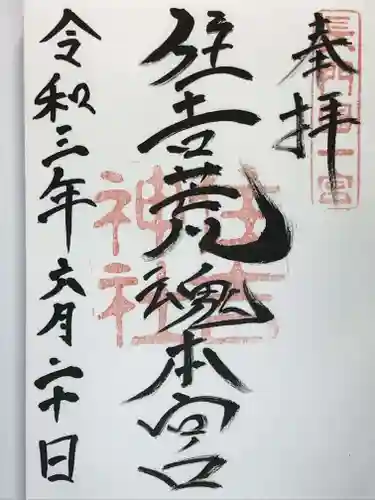 奉拝
長門國一宮
住吉荒魂本宮
住吉神社
令和三年六月二十日